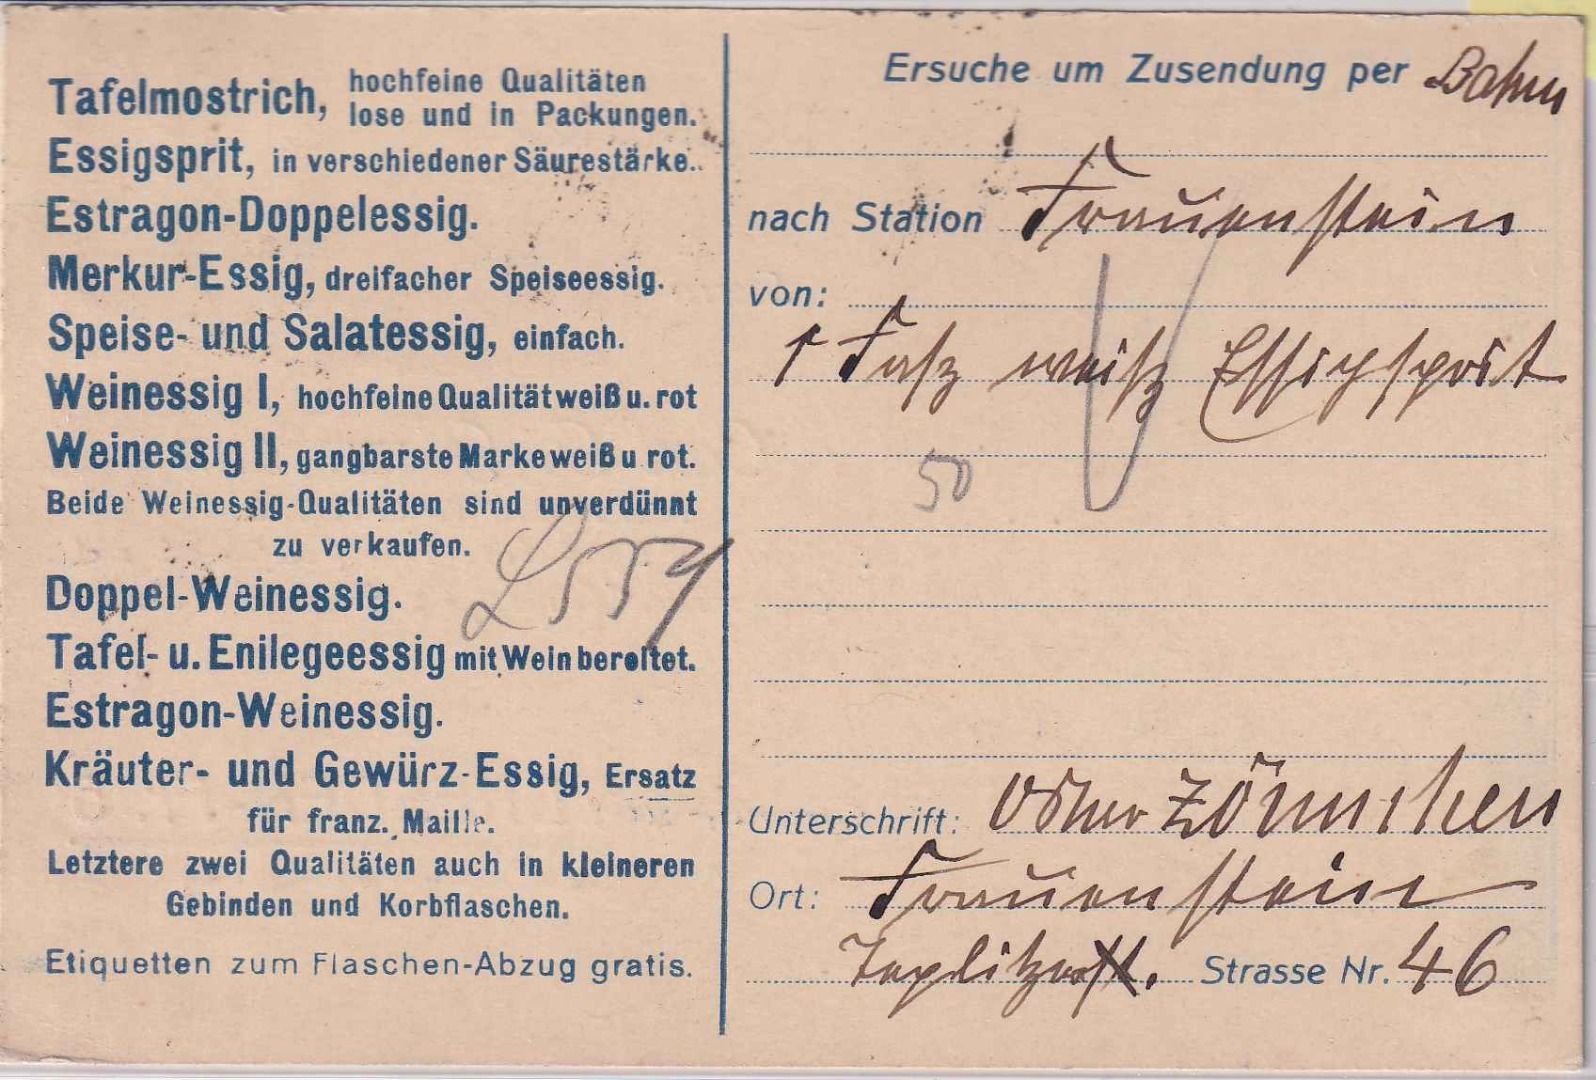 Tafelmostrich, hochfeine Qualitäten
lose und in Packungen.
Essigsprit, in verschiedener Säurestärke.
Estragon-Doppelessig.
Merkur-Essig, dreifacher Speiseessig.
Speise- und Salatessig, einfach.
Weinessig I, hochfeine Qualität weiß u. rot
Weinessig II, gangbarste Marke weiß u rot.
Beide Weinessig-Qualitäten sind unverdünnt
zu verkaufen.
Doppel-Weinessig.
Tafel- u. Enilegeessig mit Wein bereitet.
Estragon-Weinessig.
Kräuter- und Gewürz-Essig, Ersatz
für franz. Maille.
Letztere zwei Qualitäten auch in kleineren
Gebinden und Korbflaschen.
Etiquetten zum Flaschen-Abzug gratis.
Ersuche um Zusendung per Bahn
nach Station Frauenstein
von:
1 Faß weiß Essigsprit
50
Unterschrift: Oskar Zönnchen
Ort: Frauenstein
Teplitzer Strasse Nr. 46